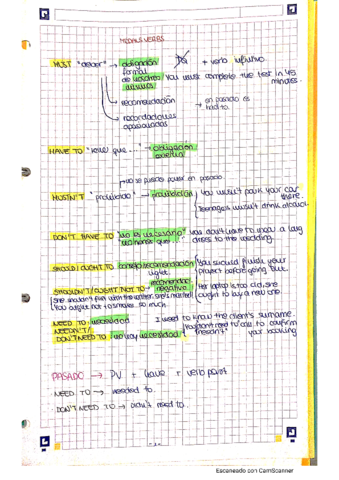 MODALS VERBS
MUST "deber" → obligación formal de nosotros mismos + verb infinitivo
You must complete the test in 45 minutes.
→ recomendación → en pasado es had to.
→ recordaciones
HAVE TO "tener que ..." → obligación externa
→ no se puede poner en pasado
MUSTN'T "prohibido" → prohibición You mustn't park your car there.
Teenagers mustn't drink alcohol.
DON'T HAVE TO "no es necesario" You don't have to wear a long dress to the wedding.
no tienes que
SHOULD/OUGHT TO consejo/recomendación You should finish your project before going out.
SHOULDN'T/OUGHT NOT TO → recomendación negativa Her laptop is too old, she ought to buy a new one.
You ought not to smoke so much.
NEED TO necesidad I need to know the client's surname.
NEEDN'T/
DON'T NEED TO no hay necesidad You don't need to call to confirm your booking
PASADO → PV + have + verb participle
· NEED TO → needed to.
· DON'T NEED TO → didn't need to.
Escaneado con CamScanner